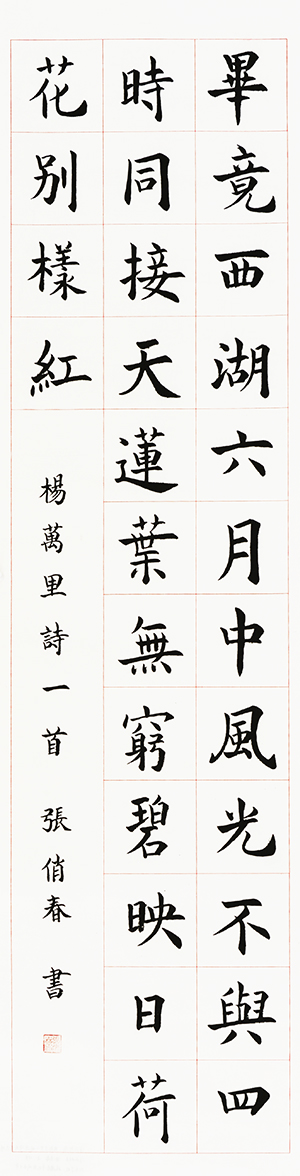 畢竟西湖六月中風光不與四
時同接天蓮葉無窮碧映日荷
花别樣紅
楊萬里詩一首 張俏春 書